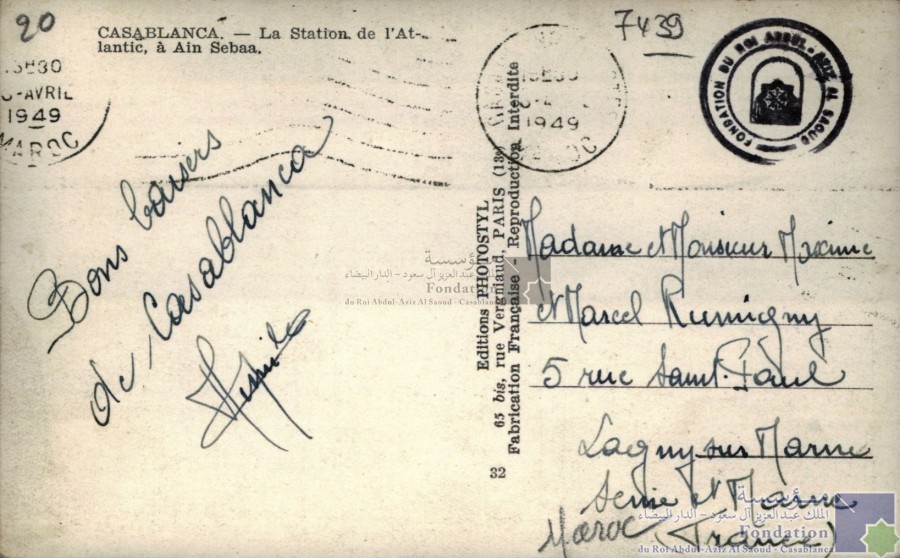 20
CASABLANCA. — La Station de l'At-
lantic, à Ain Sebaa.
AVRIL
1949
MAROC
Bons baisers
de Casablanca
7439
1949
FONDATION DU ROI ABDUL-AZIZ AL SAOUD
Editions PHOTOSTYL
65 bis, rue Vergniaud, PARIS (13e)
Fabrication Française Reproduction Interdite
32
Madame et Monsieur Maxime
et Marcel Rumigny
5 rue Saint-Paul
Lagny sur Marne
Seine et Marne
(France)
Maroc
مؤسسة
الملك عبدالعزيز آل سعود - الدار البيضاء
Fondation
du Roi Abdul-Aziz Al Saoud - Casablanca
مؤسسة
الملك عبدالعزيز آل سعود - الدار البيضاء
Fondation
du Roi Abdul-Aziz Al Saoud - Casablanca